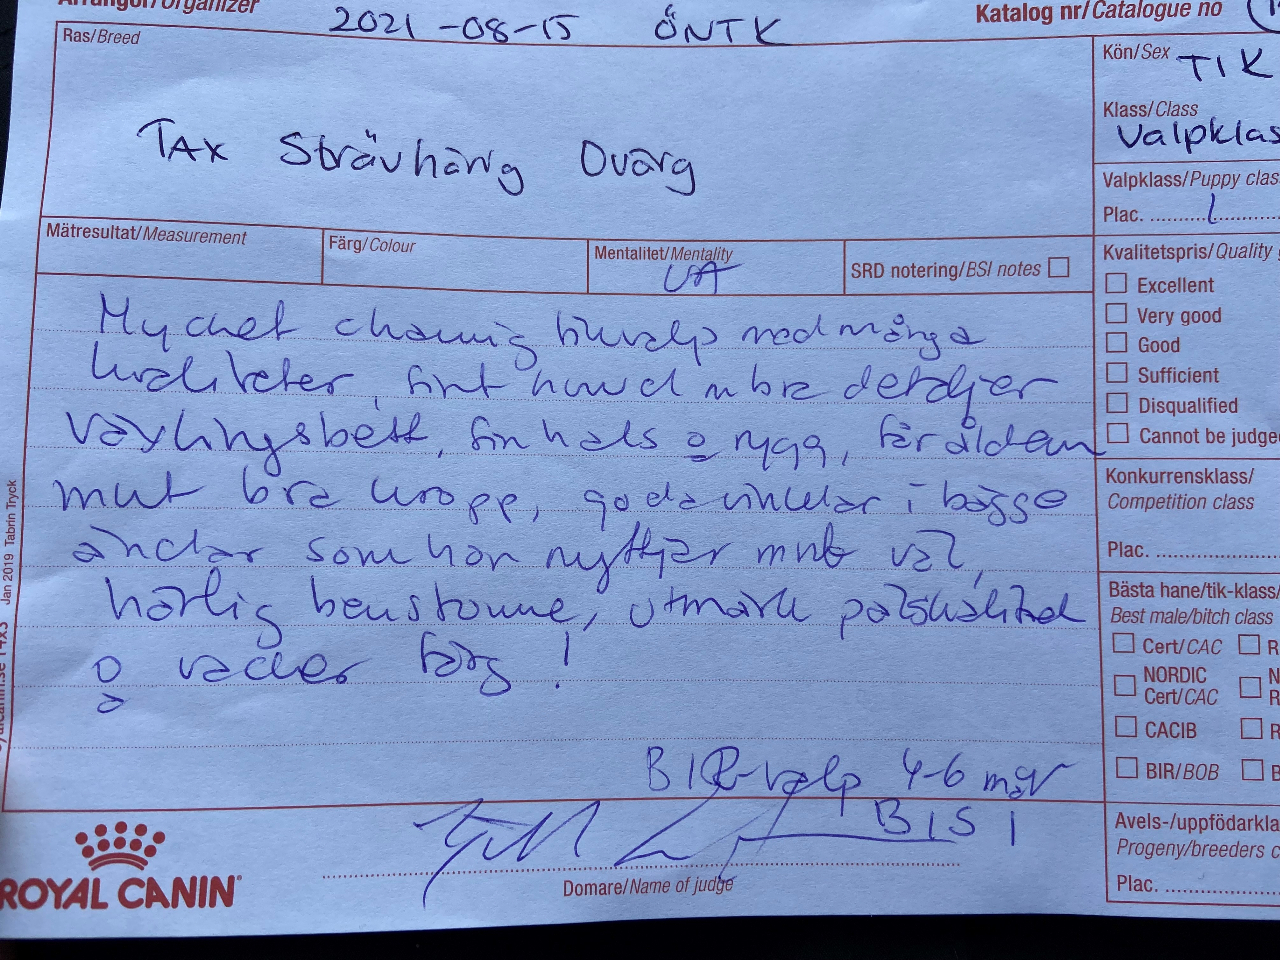 Arrangör/Organizer
2021-08-15 ÖNTK
Katalog nr/Catalogue no
Ras/Breed
Tax Strävhårig Dvärg
Kön/Sex TIK
Klass/Class
Valpklas
Valpklass/Puppy clas
Plac. 1
Mätresultat/Measurement
Färg/Colour
Mentalitet/Mentality
UA
SRD notering/BSI notes
Kvalitetspris/Quality
Excellent
Very good
Good
Sufficient
Disqualified
Cannot be judge
Mycket charmig tikvalp med många
kvaliteter, fint huvud m bra detaljer
växlingsbett, fin hals o rygg, för åldern
mkt bra kropp, goda vinklar i bägge
ändar som hon nyttjar mkt väl,
härlig benstomme, utmärk pälskvalitet
o vacker färg!
BIR-valp 4-6 mån
BIS 1
Konkurrensklass/
Competition class
Plac.
Bästa hane/tik-klass/
Best male/bitch class
Cert/CAC R
NORDIC N
Cert/CAC R
CACIB R
BIR/BOB B
Avels-/uppfödarkla
Progeny/breeders c
Plac.
Domare/Name of judge
ROYAL CANIN
Jan 2019 Tabrin Tryck